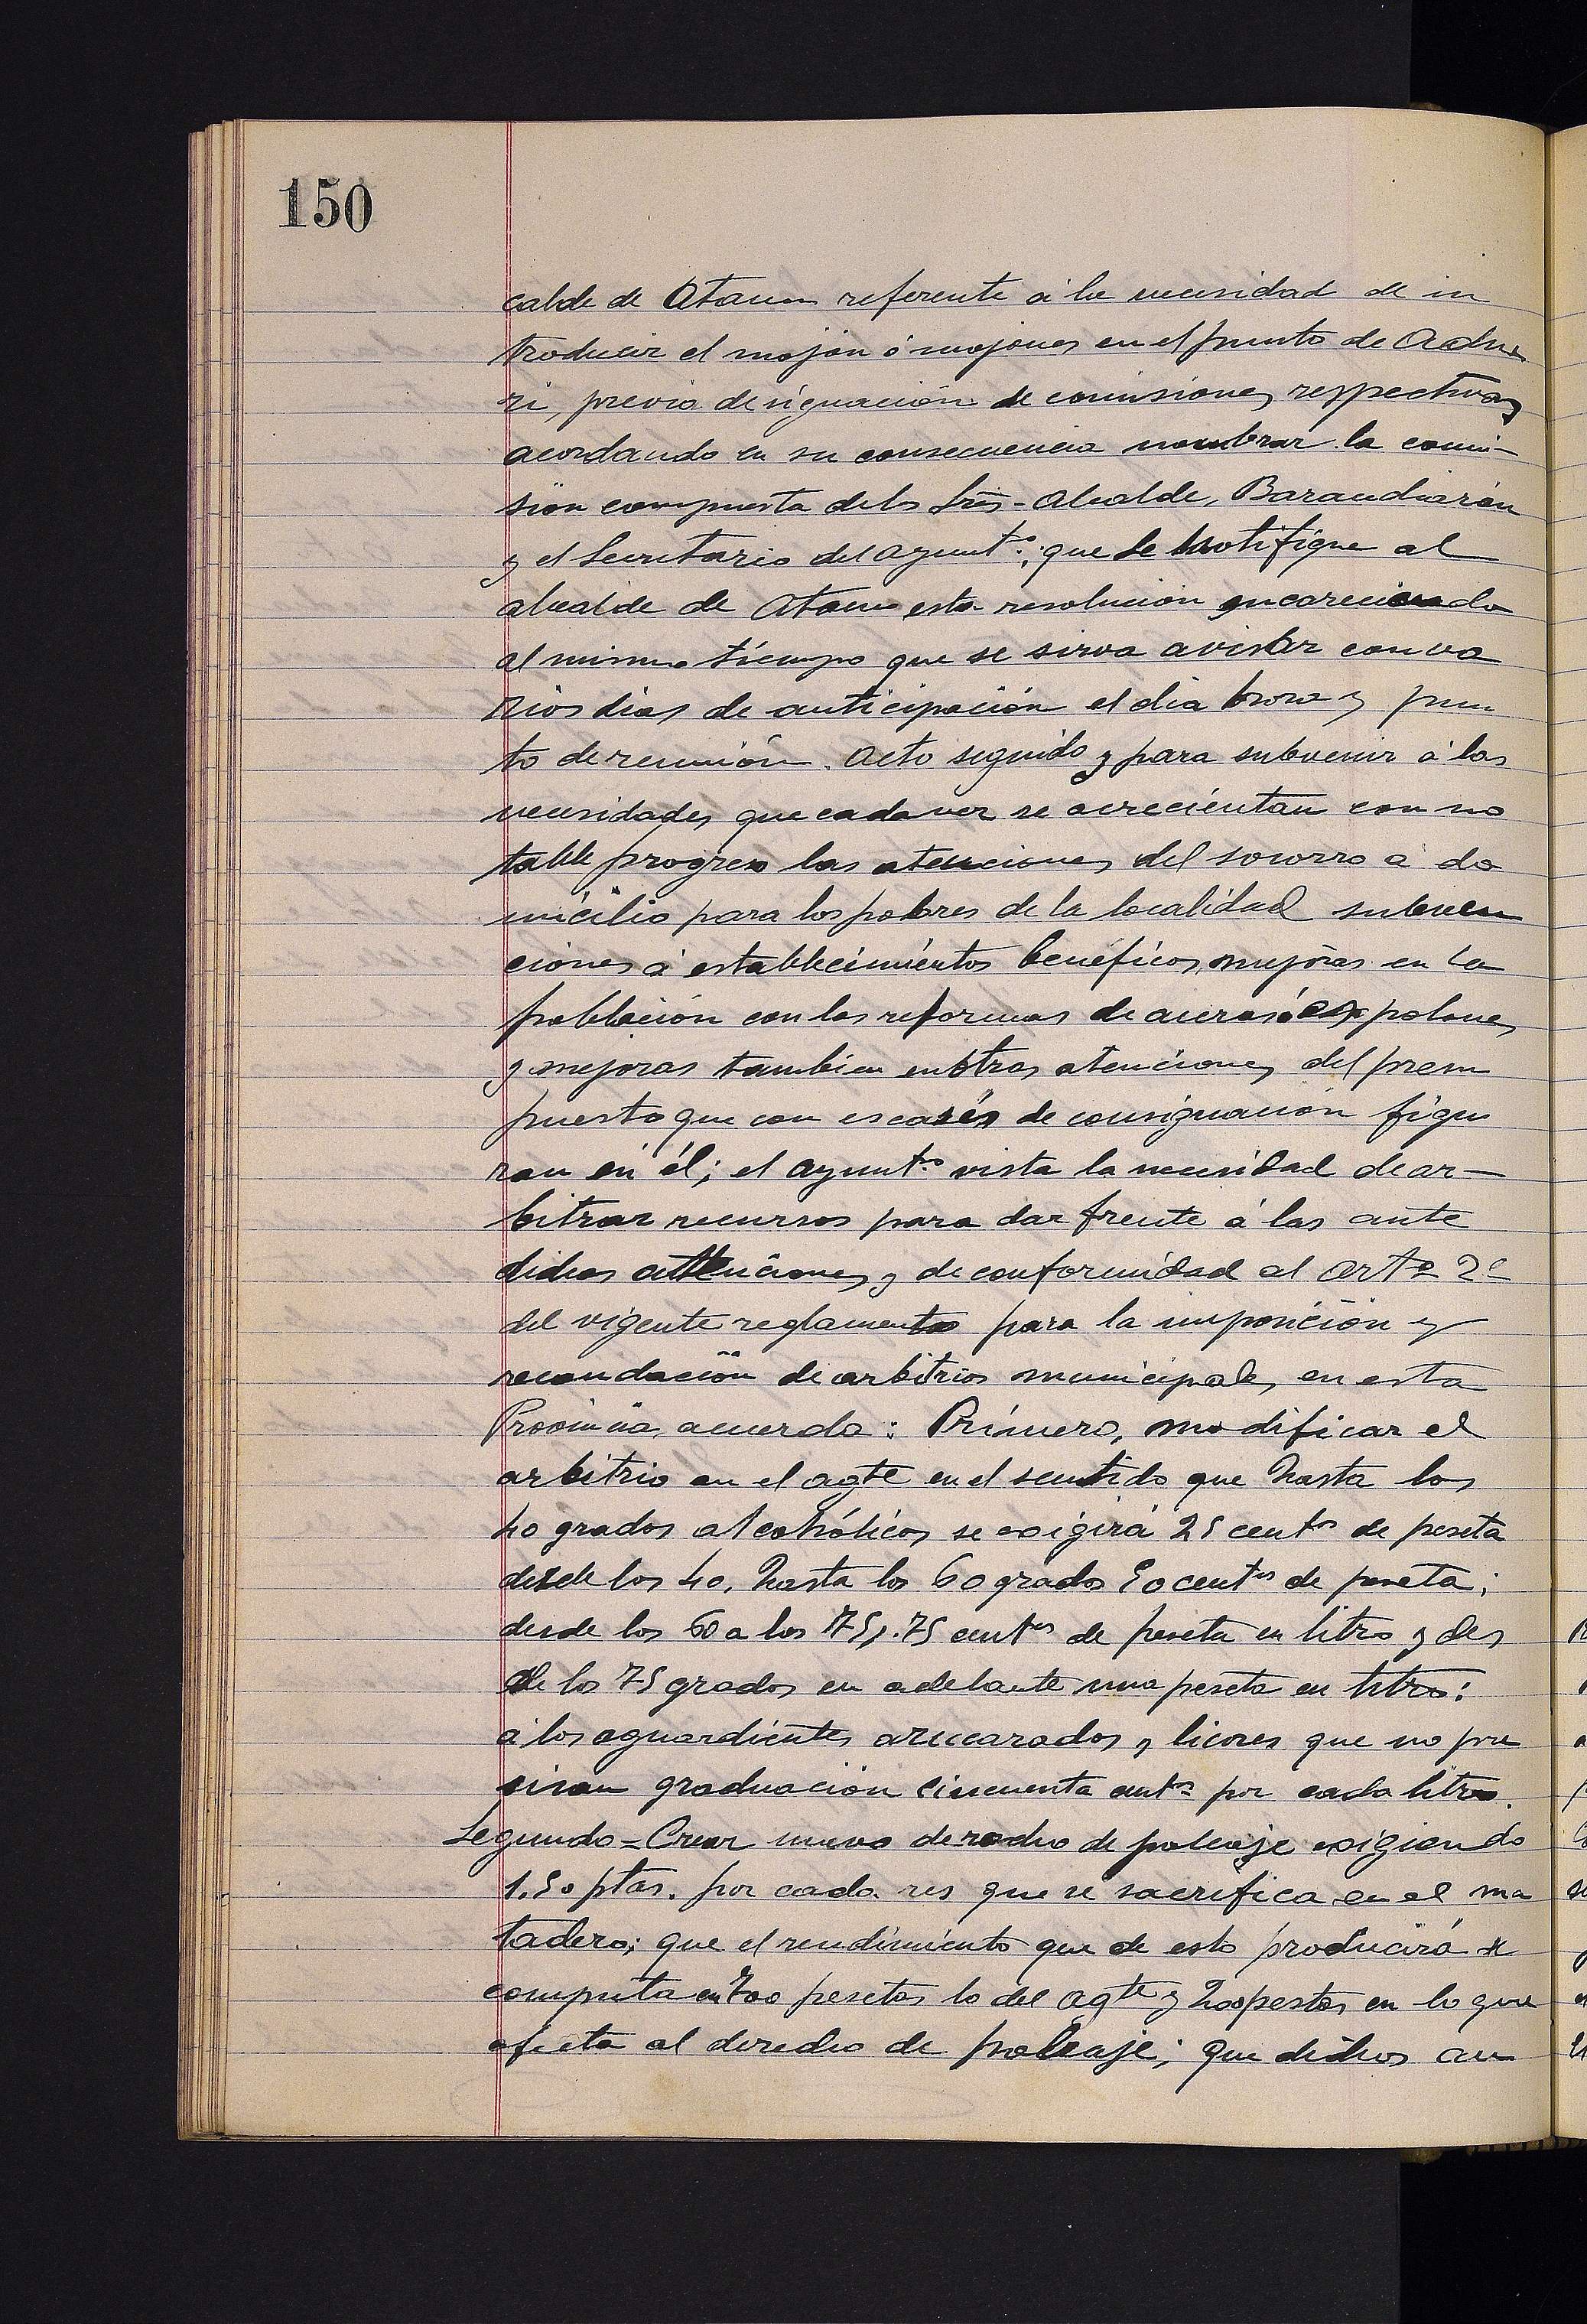 150
calde de Ataun referente á la necesidad de in
troducir el mojón ó mojones en el punto de
ri, previa designación de comisiones respectivas
acordando en su consecuencia nombrar la comi-
sión compuesta de los Srs. Alcalde, Barandiarán
y el Secretario del ayuntº; que se notifique al
alcalde de Ataun esta resolución encareciendo
al mismo tiempo que se sirva avisar con va
rios dias de anticipación el dia hora y pun
to de reunión. Acto seguido y para subvenir á las
necesidades que cada vez se acrecientan con no
table progreso las atenciones del socorro á do
micilio para los pobres de la localidad subven
ciones á establecimientos benéficos, mejoras en la
población con las reformas de aceras
y mejoras tambien en otras atenciones del presu
puesto que con escasés de consignación figu
ran en él; el ayuntº vista la necesidad de ar-
bitrar recursos para dar frente á las ante
dichas atenciones y de conformidad al artº 2º
del vigente reglamento para la imposición y
recaudación de arbitrios municipales en esta
Provincia, acuerda: Primero, modificar el
arbitrio en el agte en el sentido que hasta los
40 grados alcohólicos se exigirá 25 cents de peseta
desde los 40, hasta los 60 grados 50 cents de peseta;
desde los 60 a los 75, 75 cents de peseta en litro y des
de los 75 grados en adelante una peseta en litro:
á los aguardientes azucarados y licores que no pre
cisan graduación cincuenta cents por cada litro.
Segundo = Crear nuevo derecho de poleaje exigiendo
1.50 ptas. por cada res que se sacrifica en el ma
tadero; que el rendimiento que de esto producirá se
computa en 700 pesetas lo del agte y 200 pesetas en lo que
afecta al derecho de poleaje; que dichos au